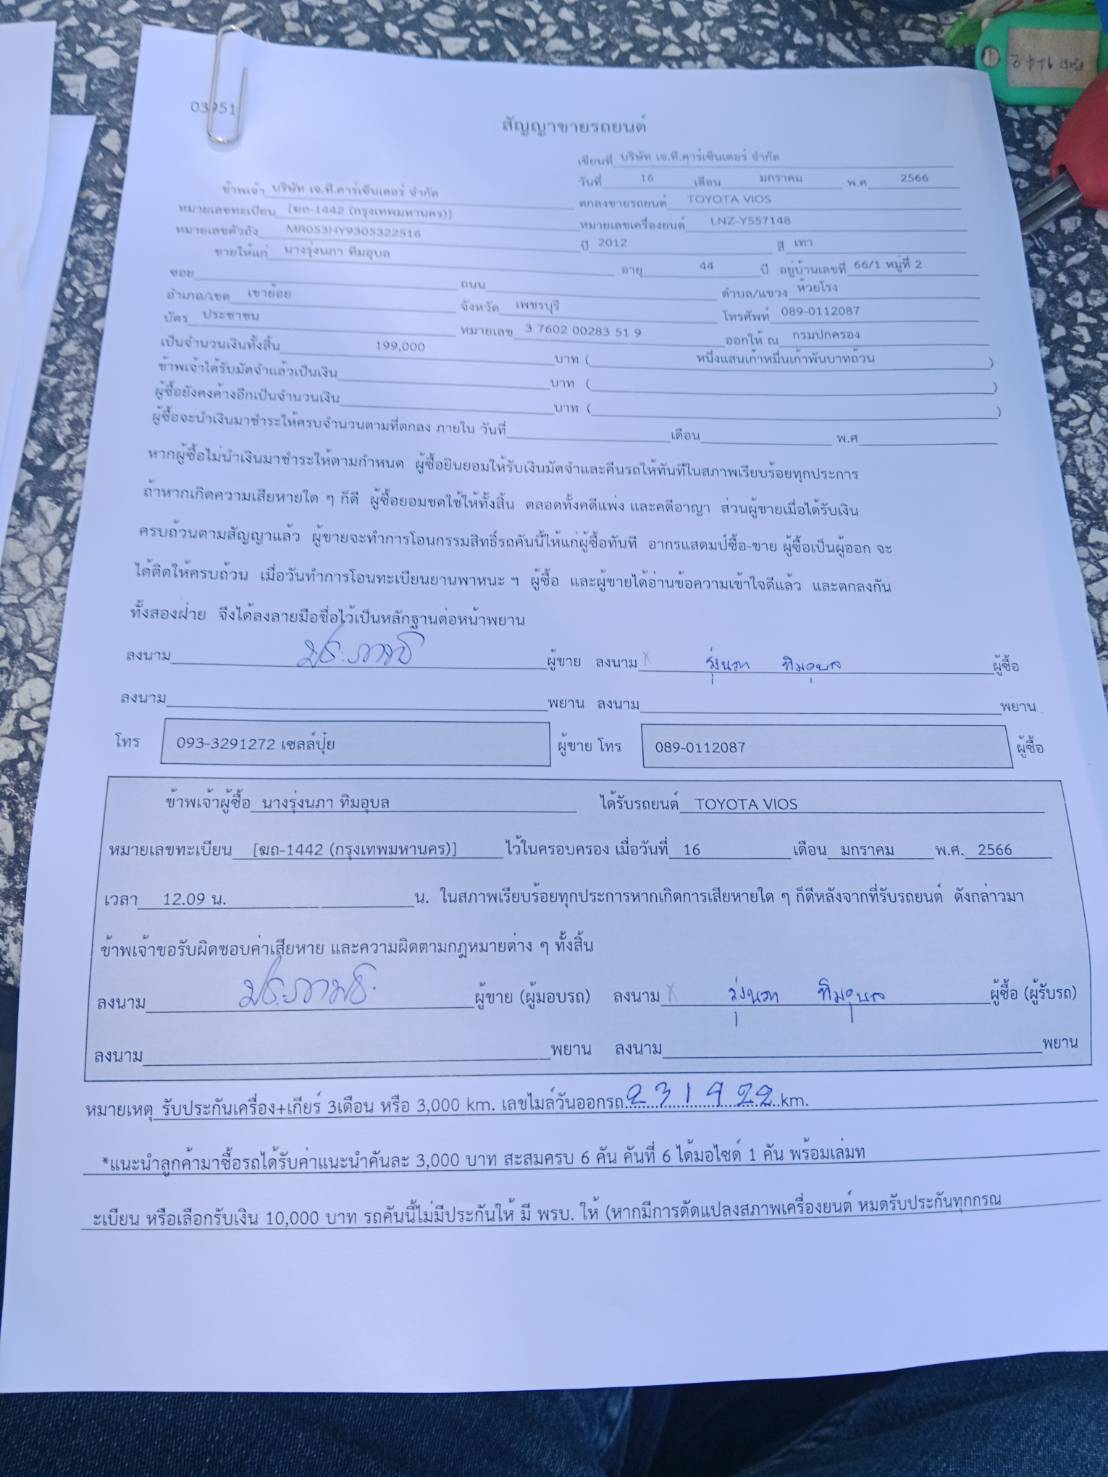 03951
สัญญาขายรถยนต์
เขียนที่ บริษัท เจ.ที.คาร์เซ็นเตอร์ จำกัด
วันที่ 16 เดือน มกราคม พ.ศ. 2566
ข้าพเจ้า บริษัท เจ.ที.คาร์เซ็นเตอร์ จำกัด ตกลงขายรถยนต์ TOYOTA VIOS
หมายเลขทะเบียน [ฆถ-1442 (กรุงเทพมหานคร)] หมายเลขเครื่องยนต์ LNZ-Y557148
หมายเลขตัวถัง MR053HY9305322516 ปี 2012 สี เทา
ขายให้แก่ นางรุ่งนภา ทิมอุบล อายุ 44 ปี อยู่บ้านเลขที่ 66/1 หมู่ที่ 2
ซอย ถนน ตำบล/แขวง ห้วยโรง
อำเภอ/เขต เขาย้อย จังหวัด เพชรบุรี โทรศัพท์ 089-0112087
บัตร ประชาชน หมายเลข 3 7602 00283 51 9 ออกให้ ณ กรมปกครอง
เป็นจำนวนเงินทั้งสิ้น 199,000 บาท ( หนึ่งแสนเก้าหมื่นเก้าพันบาทถ้วน )
ข้าพเจ้าได้รับมัดจำแล้วเป็นเงิน บาท ( )
ผู้ซื้อยังคงค้างอีกเป็นจำนวนเงิน บาท ( )
ผู้ซื้อจะนำเงินมาชำระให้ครบจำนวนตามที่ตกลง ภายใน วันที่ เดือน พ.ศ
หากผู้ซื้อไม่นำเงินมาชำระให้ตามกำหนด ผู้ซื้อยินยอมให้รับเงินมัดจำและคืนรถให้ทันทีในสภาพเรียบร้อยทุกประการ
ถ้าหากเกิดความเสียหายใด ๆ ก็ดี ผู้ซื้อยอมชดใช้ให้ทั้งสิ้น ตลอดทั้งคดีแพ่ง และคดีอาญา ส่วนผู้ขายเมื่อได้รับเงิน
ครบถ้วนตามสัญญาแล้ว ผู้ขายจะทำการโอนกรรมสิทธิ์รถคันนี้ให้แก่ผู้ซื้อทันที อากรแสตมป์ซื้อ-ขาย ผู้ซื้อเป็นผู้ออก จะ
ได้ติดให้ครบถ้วน เมื่อวันทำการโอนทะเบียนยานพาหนะ ฯ ผู้ซื้อ และผู้ขายได้อ่านข้อความเข้าใจดีแล้ว และตกลงกัน
ทั้งสองฝ่าย จึงได้ลงลายมือชื่อไว้เป็นหลักฐานต่อหน้าพยาน
ลงนาม ผู้ขาย ลงนาม x รุ่งนภา ทิมอุบล ผู้ซื้อ
ลงนาม พยาน ลงนาม พยาน
โทร 093-3291272 เซลล์ปุ้ย ผู้ขาย โทร 089-0112087 ผู้ซื้อ
ข้าพเจ้าผู้ซื้อ นางรุ่งนภา ทิมอุบล ได้รับรถยนต์ TOYOTA VIOS
หมายเลขทะเบียน [ฆถ-1442 (กรุงเทพมหานคร)] ไว้ในครอบครอง เมื่อวันที่ 16 เดือน มกราคม พ.ศ. 2566
เวลา 12.09 น. น. ในสภาพเรียบร้อยทุกประการหากเกิดการเสียหายใด ๆ ก็ดีหลังจากที่รับรถยนต์ ดังกล่าวมา
ข้าพเจ้าขอรับผิดชอบค่าเสียหาย และความผิดตามกฎหมายต่าง ๆ ทั้งสิ้น
ลงนาม ผู้ขาย (ผู้มอบรถ) ลงนาม x รุ่งนภา ทิมอุบล ผู้ซื้อ (ผู้รับรถ)
ลงนาม พยาน ลงนาม พยาน
หมายเหตุ รับประกันเครื่อง+เกียร์ 3เดือน หรือ 3,000 km. เลขไมล์วันออกรถ 231922 km.
*แนะนำลูกค้ามาซื้อรถได้รับค่าแนะนำคันละ 3,000 บาท สะสมครบ 6 คัน คันที่ 6 ได้มอไซด์ 1 คัน พร้อมเล่มท
ะเบียน หรือเลือกรับเงิน 10,000 บาท รถคันนี้ไม่มีประกันให้ มี พรบ. ให้ (หากมีการดัดแปลงสภาพเครื่องยนต์ หมดรับประกันทุกกรณ